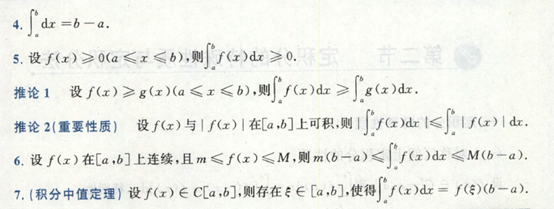 4. ∫_a^b dx = b - a.
5. 设 f(x) ≥ 0(a ≤ x ≤ b),则∫_a^b f(x)dx ≥ 0.
推论 1 设 f(x) ≥ g(x)(a ≤ x ≤ b),则∫_a^b f(x)dx ≥ ∫_a^b g(x)dx.
推论 2(重要性质) 设 f(x) 与 | f(x) | 在[a,b]上可积,则 | ∫_a^b f(x)dx | ≤ ∫_a^b | f(x) | dx.
6. 设 f(x) 在[a,b]上连续,且 m ≤ f(x) ≤ M,则 m(b - a) ≤ ∫_a^b f(x)dx ≤ M(b - a).
7. (积分中值定理) 设 f(x) ∈ C[a,b],则存在 ξ ∈ [a,b],使得∫_a^b f(x)dx = f(ξ)(b - a).